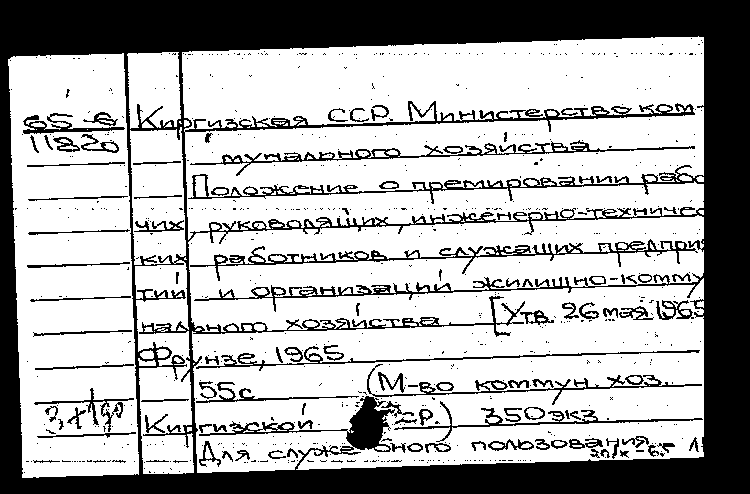 65-8
11820
Киргизская ССР. Министерство ком-
мунального хозяйства.
Положение о премировании рабо
чих, руководящих, инженерно-техничес
ких работников и служащих предприя
тий и организаций жилищно-комму
нального хозяйства. [Утв. 26 мая 1965
Фрунзе, 1965.
55с (М-во коммун. хоз.
Киргизской ССР.) 350 экз.
Для служебного пользования.